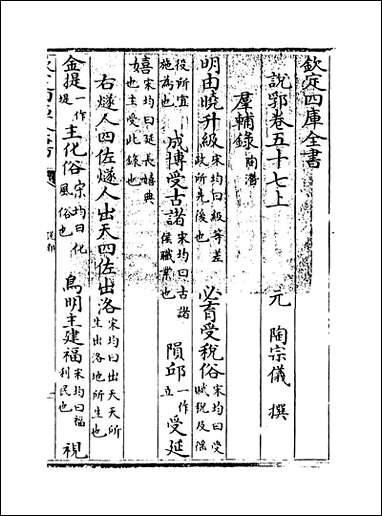 欽定四庫全書
說郛卷五十七上
元 陶宗儀 撰
羣輔錄 陶潛
明由曉升級 宋均曰級等差政所先後也 必育受稅俗 宋均曰受賦稅及徭
役所宜施為也 成博受古諸 宋均曰古諸侯職業也 隕邱 一作立 受延
嬉 宋均曰延長嬉典也主受此錄也
右燧人四佐燧人出天四佐出洛 宋均曰出天天所生出洛地所生也
金提 一作堤 主化俗 宋均曰化風俗也 鳥明主建福 宋均曰福利民也 視